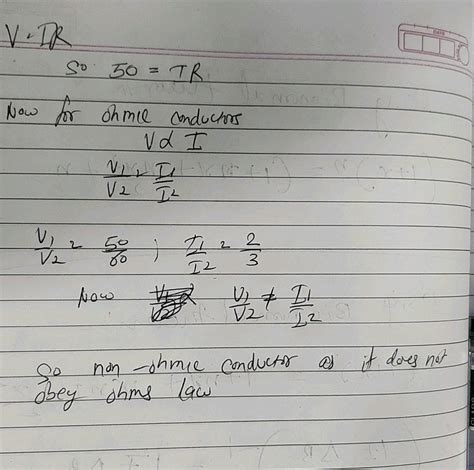 V = IR
So 50 = IR
Now for ohmic conductors
V α I
V1/V2 = I1/I2
V1/V2 = 50/60 ; I1/I2 = 2/3
Now V1/V2 ≠ I1/I2
So non-ohmic conductor as it does not
obey ohms law